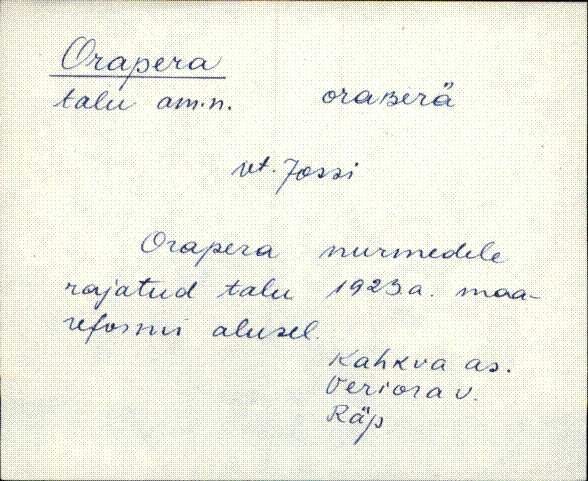 Orapera
talu am.n. oraʙerä
vt. Jossi
Orapera nurmedele
rajatud talu 1923.a. maa-
reformi alusel.
Kahkva as.
Veriora v.
Räp